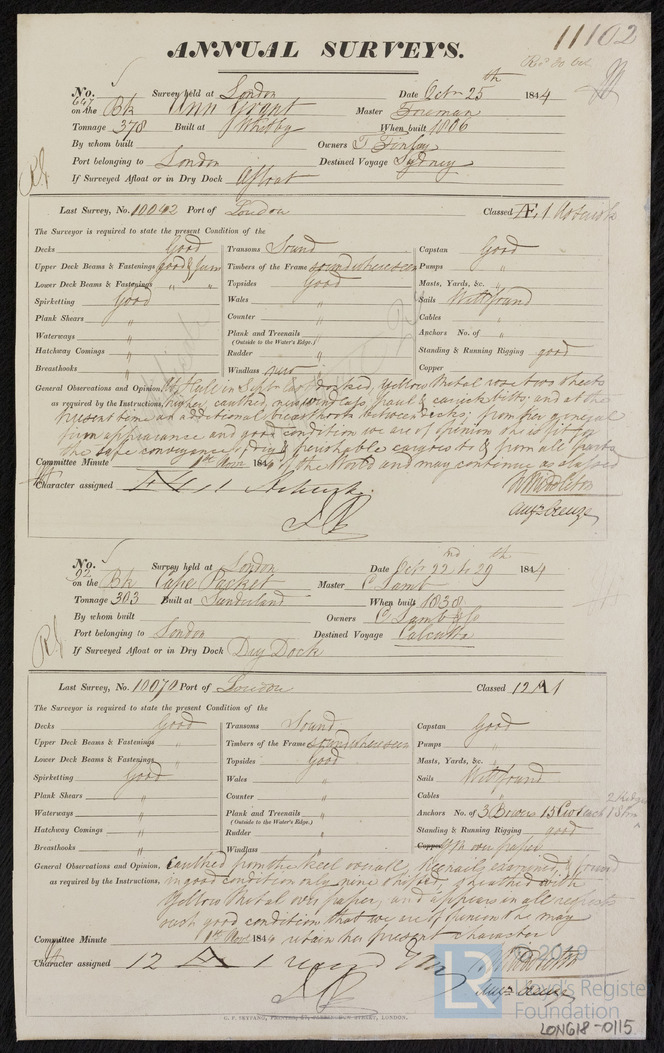 11102
ANNUAL SURVEYS.
No. 647 Survey held at London Date Octr 25th 1844
on the Bk Ann Grant Master Freeman
Tonnage 378 Built at Whitby When built 1806
By whom built Owners T Finlay
Port belonging to London Destined Voyage Sydney
If Surveyed Afloat or in Dry Dock Afloat
Last Survey, No. 10042 Port of London Classed Æ 1
The Surveyor is required to state the present Condition of the
Decks Good Transoms Sound Capstan Good
Upper Deck Beams & Fastenings good & firm Timbers of the Frame sound where seen Pumps "
Lower Deck Beams & Fastenings " " Topsides Good Masts, Yards, &c. "
Spirketting Good Wales " Sails Well found
Plank Shears " Counter " Cables "
Waterways " Plank and Treenails " Anchors No. of "
(Outside to the Water's Edge.)
Hatchway Comings " Rudder " Standing & Running Rigging good
Breasthooks " Windlass new Copper
General Observations and Opinion, docked, Yellow Metal two sheets
as required by the Instructions, higher, caulked, new windlass, paul & carrick bitts; and at the
present time an additional breasthook between decks; from her general
firm appearance and good condition we are of opinion she is fit for
the safe conveyance of dry & perishable cargoes to & from all parts
Committee Minute 1st Novr 1844 of the World and may continue as classed
Character assigned Æ 1
Augn Creuze
No. 92 Survey held at London Date Octr 22nd to 29th 1844
on the Bk Cape Packet Master C Lamb
Tonnage 303 Built at Sunderland When built 1838
By whom built Owners C Lamb & Co
Port belonging to London Destined Voyage Calcutta
If Surveyed Afloat or in Dry Dock Dry Dock
Last Survey, No. 10070 Port of London Classed 12 A 1
The Surveyor is required to state the present Condition of the
Decks Good Transoms Sound Capstan Good
Upper Deck Beams & Fastenings " Timbers of the Frame sound where seen Pumps "
Lower Deck Beams & Fastenings " Topsides Good Masts, Yards, &c. "
Spirketting Good Wales " Sails Well found
Plank Shears " Counter " Cables "
Waterways " Plank and Treenails " Anchors No. of 3 Bowers
(Outside to the Water's Edge.)
Hatchway Comings " Rudder " Standing & Running Rigging good
Breasthooks " Windlass " Copper over paper
General Observations and Opinion, Caulked from the keel overall, treenails examined & found
as required by the Instructions, in good condition only nine shifted, & sheathed with
Yellow Metal over paper, and appears in all respects
in such good condition that we are of opinion she may
Committee Minute 1st Novr 1844 retain her present character
Character assigned 12 A 1
Augn Creuze
LR
© 2019
Lloyd's Register
Foundation
LON618-0115